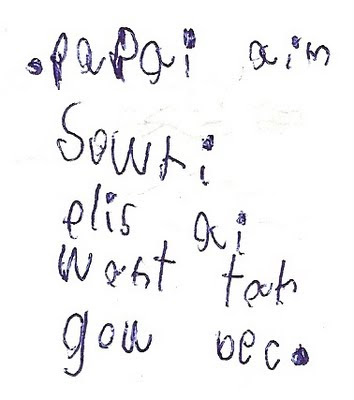 .PaPai aim
Sowri
elis ai
want tah
gow bec.